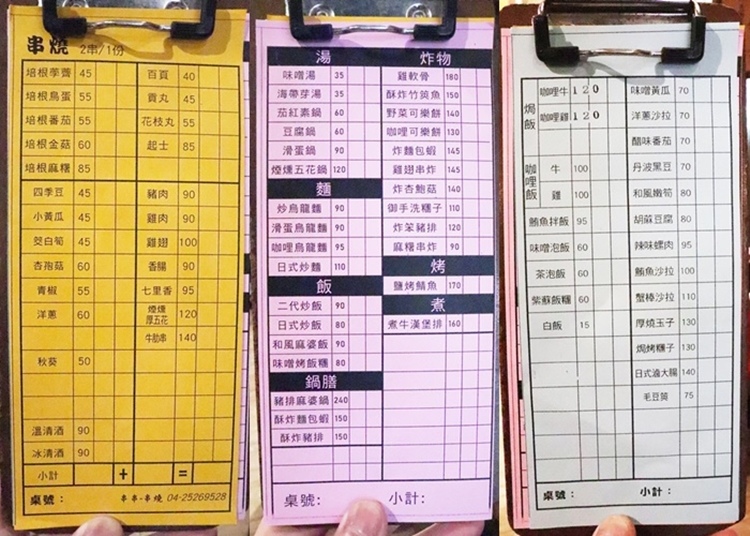 串燒 2串/1份
培根荸薺 45 百頁 40
培根鳥蛋 55 貢丸 45
培根番茄 55 花枝丸 55
培根金菇 60 起士 85
培根麻糬 85
四季豆 45 豬肉 90
小黃瓜 45 雞肉 90
筊白筍 45 雞翅 100
杏孢菇 60 香腸 90
青椒 55 七里香 95
洋蔥 60 煙燻厚五花 120
牛肋串 140
秋葵 50
溫清酒 90
冰清酒 90
小計 + =
桌號： 串串-串燒 04-25269528
湯
味噌湯 35
海帶芽湯 35
茄紅素鍋 60
豆腐鍋 60
滑蛋鍋 90
煙燻五花鍋 120
麵
炒烏龍麵 90
滑蛋烏龍麵 90
咖哩烏龍麵 95
日式炒麵 110
飯
二代炒飯 90
日式炒飯 80
和風麻婆飯 90
味噌烤飯糰 80
鍋膳
豬排麻婆鍋 240
酥炸麵包蝦 150
酥炸豬排 150
炸物
雞軟骨 180
酥炸竹筴魚 150
野菜可樂餅 140
咖哩可樂餅 130
炸麵包蝦 145
雞翅串炸 145
炸杏鮑菇 140
御手洗糰子 110
炸笨豬排 120
麻糬串炸 90
烤
鹽烤鯖魚 170
煮
煮牛漢堡排 160
桌號： 小計：
焗飯
咖哩牛 120
咖哩雞 120
咖哩飯
牛 100
雞 100
鮪魚拌飯 95
味噌泡飯 60
茶泡飯 60
紫蘇飯糰 60
白飯 15
味噌黃瓜 70
洋蔥沙拉 70
醋味番茄 70
丹波黑豆 70
和風嫩筍 80
胡蔴豆腐 80
辣味螺肉 95
鮪魚沙拉 100
蟹棒沙拉 110
厚燒玉子 130
焗烤糰子 130
日式滷大腸 140
毛豆筴 75
桌號： 小計：